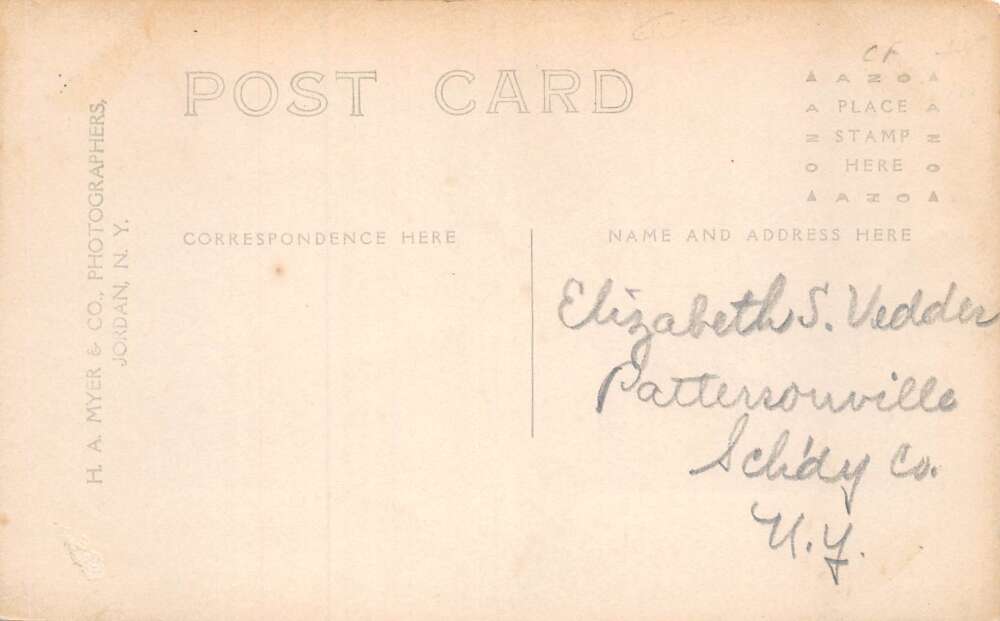 POST CARD
CF
AZO
PLACE
STAMP
HERE
AZO
AZO
AZO
H. A. MYER & CO., PHOTOGRAPHERS,
JORDAN, N. Y.
CORRESPONDENCE HERE
NAME AND ADDRESS HERE
Elizabeth S. Vedder
Pattersonville
Sch'dy Co.
N.Y.